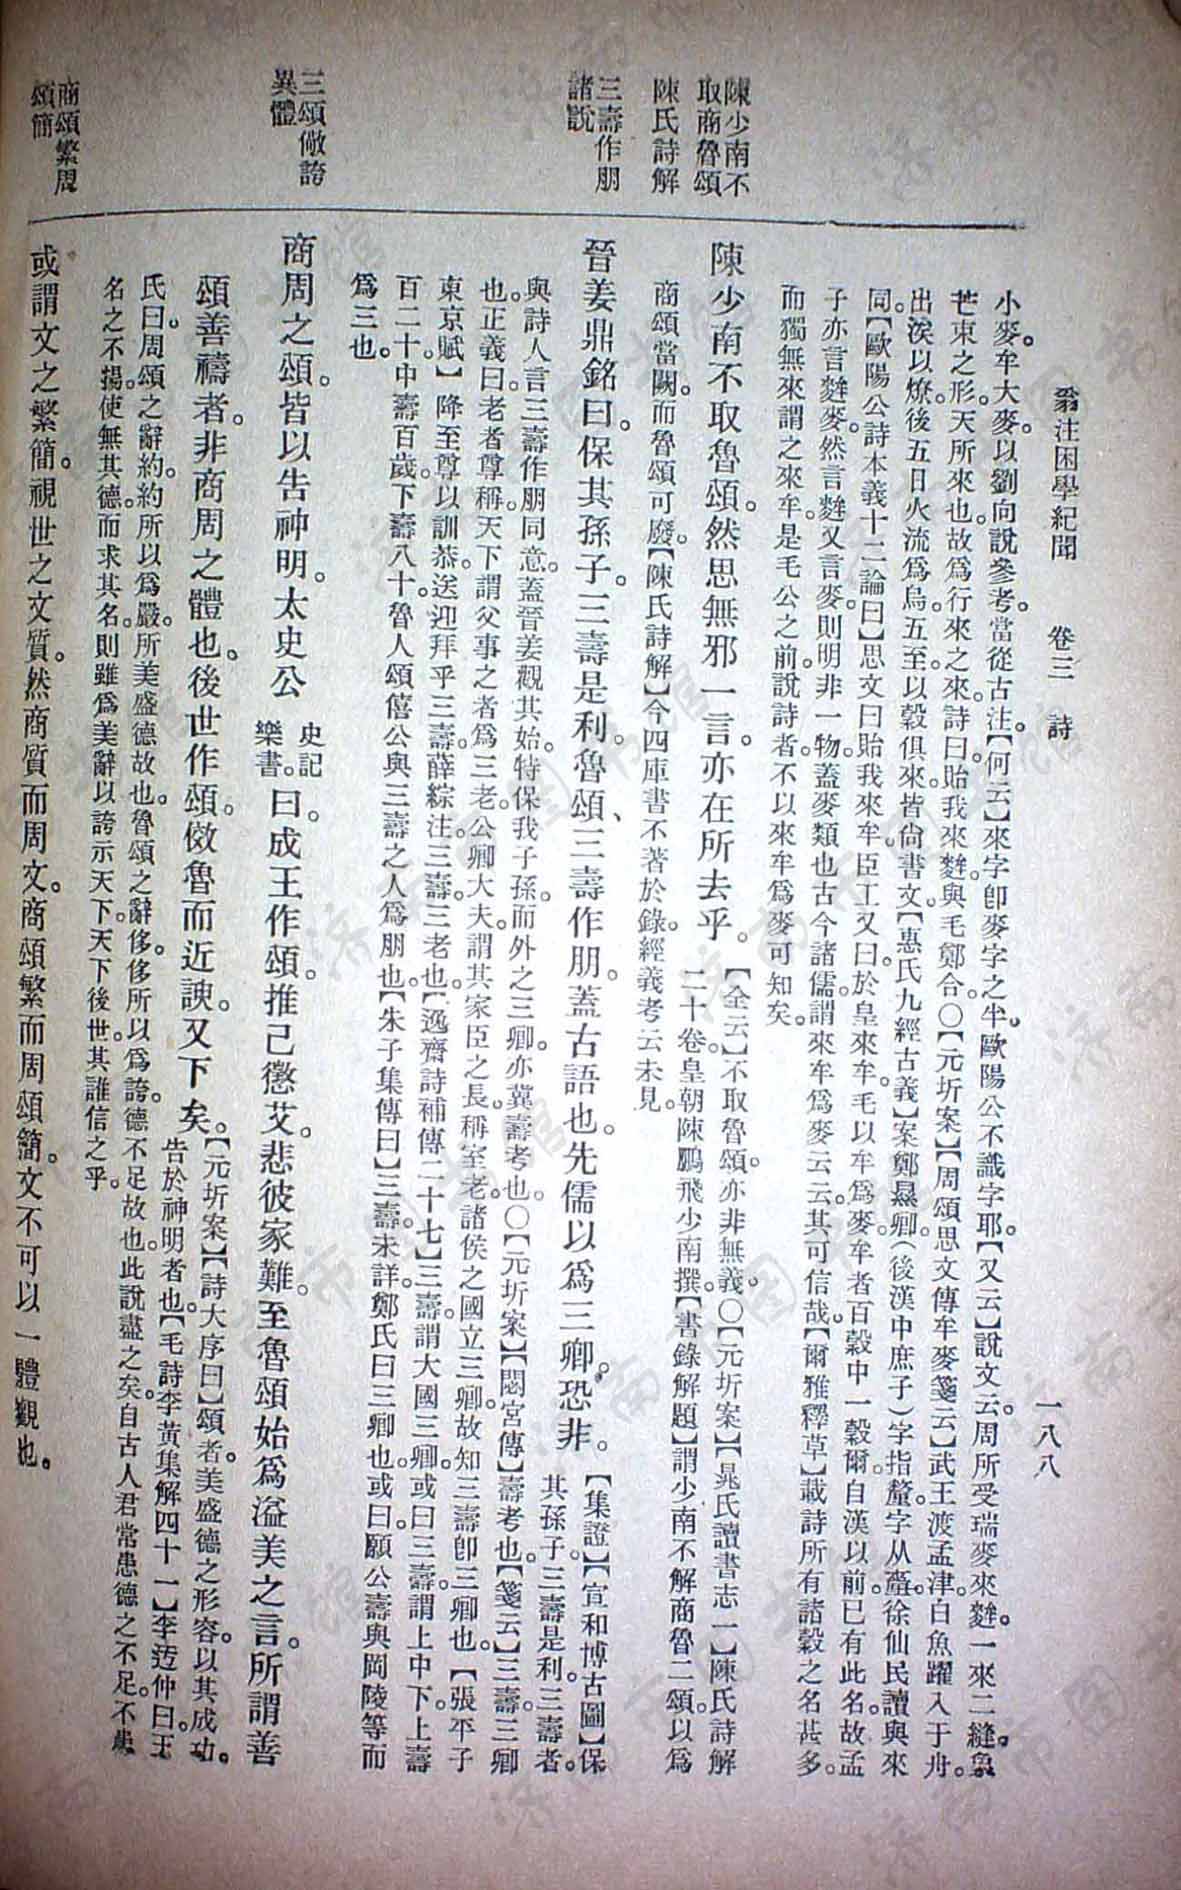 翁注困學紀聞　卷三　詩　一八八
陳少南不
取商魯頌
陳氏詩解
三壽作朋
諸說
三頌傚誇
異體
商頌繁周
頌簡
小麥。牟大麥。以劉向說參考。當從古注。【何云】來字卽麥字之半。歐陽公不識字耶。【又云】說文云。周所受瑞麥來麰。一來二縫。象
芒束之形。天所來也。故爲行來之來。詩曰。貽我來麰。與毛鄭合。〇【元圻案】【周頌思文傳牟麥箋云】武王渡孟津。白魚躍入于舟。
出涘以燎。後五日火流爲烏。五至。以穀俱來。皆尙書文。【惠氏九經古義】案鄭㬎卿。(後漢中庶子)字指釐。字从𠩺。徐仙民讀與來
同。【歐陽公詩本義十二論曰】思文曰。貽我來牟。臣工又曰。於皇來牟。毛以牟爲麥。牟者。百穀中一穀爾。自漢以前。已有此名。故孟
子亦言麰麥。然言麰又言麥。則明非一物。蓋麥類也。古今諸儒。謂來牟爲麥云云。其可信哉。【爾雅釋草】載詩所有諸穀之名甚多。
而獨無來謂之來牟。是毛公之前。說詩者。不以來牟爲麥可知矣。
陳少南不取魯頌。然思無邪一言。亦在所去乎。【全云】不取魯頌。亦非無義。〇【元圻案】【晁氏讀書志一】陳氏詩解
二十卷。皇朝陳鵬飛少南撰。【書錄解題】謂少南不解商魯二頌。以爲
商頌當闕。而魯頌可廢。【陳氏詩解】今四庫書不著於錄。經義考云未見。
晉姜鼎銘曰。保其孫子。三壽是利。魯頌、三壽作朋。蓋古語也。先儒以爲三卿。恐非。【集證】【宣和博古圖】保
其孫子。三壽是利。三壽者。
與詩人言三壽作朋同意。蓋晉姜觀其始。特保我子孫。而外之三卿。亦冀壽考也。〇【元圻案】【閟宮傳】壽考也。【箋云】三壽。三卿
也。正義曰。老者尊稱。天下謂父事之者爲三老。公卿大夫。謂其家臣之長。稱室老。諸侯之國立三卿。故知三壽卽三卿也。【張平子
東京賦】降至尊以訓恭。送迎拜乎三壽。薛綜注。三壽。三老也。【逸齋詩補傳二十七】三壽。謂大國三卿。或曰三壽。謂上中下。上壽
百二十。中壽百歲。下壽八十。魯人頌僖公與三壽之人爲朋也。【朱子集傳曰】三壽。未詳。鄭氏曰。三卿也。或曰願公壽與岡陵等而
爲三也。
商周之頌。皆以告神明。太史公史記
樂書。曰。成王作頌。推己懲艾。悲彼家難。至魯頌始爲溢美之言。所謂善
頌善禱者。非商周之體也。後世作頌。傚魯而近諛。又下矣。【元圻案】【詩大序曰】頌者。美盛德之形容。以其成功。
告於神明者也。【毛詩李黃集解四十一】李迃仲曰。王
氏曰。周頌之辭約。約所以爲嚴。所美盛德故也。魯頌之辭侈。侈所以爲誇。德不足故也。此說盡之矣。自古人君常患德之不足。不患
名之不揚。使無其德。而求其名。則雖爲美辭以誇示天下。天下後世。其誰信之乎。
或謂文之繁簡。視世之文質。然商質而周文。商頌繁而周頌簡。文不可以一體觀也。